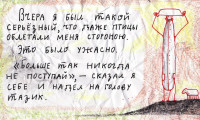 Вчера я был такой
серьёзный, что даже птицы
облетали меня стороною.
Это было ужасно.
«Больше так никогда
не поступай», – сказал я
себе и надел на голову
тазик.